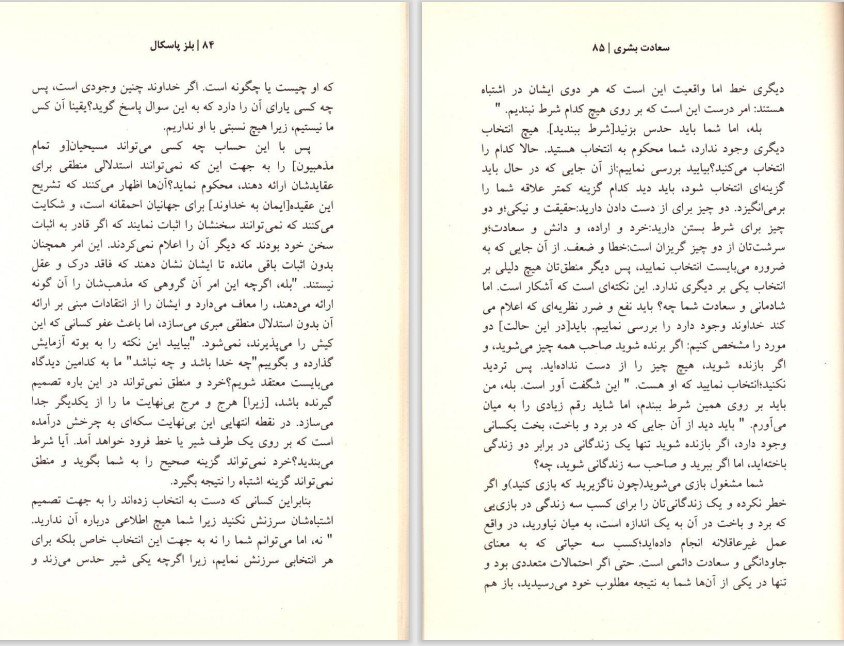 ۸۴ | بلز پاسکال
که او چیست یا چگونه است. اگر خداوند چنین وجودی است، پس
چه کسی یارای آن را دارد که به این سوال پاسخ گوید؟یقینا آن کس
ما نیستیم، زیرا هیچ نسبتی با او نداریم.
پس با این حساب چه کسی می‌تواند مسیحیان[و تمام
مذهبیون] را به جهت این که نمی‌توانند استدلالی منطقی برای
عقایدشان ارائه دهند، محکوم نماید؟آن‌ها اظهار می‌کنند که تشریح
این عقیده[ایمان به خداوند] برای جهانیان احمقانه است، و شکایت
می‌کنند که نمی‌توانند سخنشان را اثبات نمایند که اگر قادر به اثبات
سخن خود بودند که دیگر آن را اعلام نمی‌کردند. این امر همچنان
بدون اثبات باقی مانده تا ایشان نشان دهند که فاقد درک و عقل
نیستند. "بله، اگرچه این امر آن گروهی که مذهب‌شان را آن گونه
ارائه می‌دهند، را معاف می‌دارد و ایشان را از انتقادات مبنی بر ارائه
آن بدون استدلال منطقی مبری می‌سازد، اما باعث عفو کسانی که این
کیش را می‌پذیرند، نمی‌شود. "بیایید این نکته را به بوته آزمایش
گذارده و بگوییم"چه خدا باشد و چه نباشد" ما به کدامین دیدگاه
می‌بایست معتقد شویم؟خرد و منطق نمی‌تواند در این باره تصمیم
گیرنده باشد، [زیرا] هرج و مرج بی‌نهایت ما را از یکدیگر جدا
می‌سازد. در نقطه انتهایی این بی‌نهایت سکه‌ای به چرخش درآمده
است که بر روی یک طرف شیر یا خط فرود خواهد آمد. آیا شرط
می‌بندید؟خرد نمی‌تواند گزینه صحیح را به شما بگوید و منطق
نمی‌تواند گزینه اشتباه را نتیجه بگیرد.
بنابراین کسانی که دست به انتخاب زده‌اند را به جهت تصمیم
اشتباه‌شان سرزنش نکنید زیرا شما هیچ اطلاعی درباره آن ندارید.
" نه، اما می‌توانم شما را نه به جهت این انتخاب خاص بلکه برای
هر انتخابی سرزنش نمایم، زیرا اگرچه یکی شیر حدس می‌زند و
سعادت بشری | ۸۵
دیگری خط اما واقعیت این است که هر دوی ایشان در اشتباه
هستند: امر درست این است که بر روی هیچ کدام شرط نبندیم. "
بله، اما شما باید حدس بزنید[شرط ببندید]. هیچ انتخاب
دیگری وجود ندارد، شما محکوم به انتخاب هستید. حالا کدام را
انتخاب می‌کنید؟بیایید بررسی نماییم:از آن جایی که در حال باید
گزینه‌ای انتخاب شود، باید دید کدام گزینه کمتر علاقه شما را
برمی‌انگیزد. دو چیز برای از دست دادن دارید:حقیقت و نیکی؛و دو
چیز برای شرط بستن دارید:خرد و اراده، و دانش و سعادت؛و
سرشت‌تان از دو چیز گریزان است:خطا و ضعف. از آن جایی که به
ضروره می‌بایست انتخاب نمایید، پس دیگر منطق‌تان هیچ دلیلی بر
انتخاب یکی بر دیگری ندارد. این نکته‌ای است که آشکار است. اما
شادمانی و سعادت شما چه؟ باید نفع و ضرر نظریه‌ای که اعلام می
کند خداوند وجود دارد را بررسی نماییم. باید[در این حالت] دو
مورد را مشخص کنیم: اگر برنده شوید صاحب همه چیز می‌شوید، و
اگر بازنده شوید، هیچ چیز را از دست نداده‌اید. پس تردید
نکنید؛انتخاب نمایید که او هست. " این شگفت آور است. بله، من
باید بر روی همین شرط ببندم، اما شاید رقم زیادی را به میان
می‌آورم. " باید دید از آن جایی که در برد و باخت، بخت یکسانی
وجود دارد، اگر بازنده شوید تنها یک زندگانی در برابر دو زندگی
باخته‌اید، اما اگر ببرید و صاحب سه زندگانی شوید، چه؟
شما مشغول بازی می‌شوید(چون ناگزیرید که بازی کنید)و اگر
خطر نکرده و یک زندگانی‌تان را برای کسب سه زندگی در بازی‌یی
که برد و باخت در آن به یک اندازه است، به میان نیاورید، در واقع
عمل غیرعاقلانه انجام داده‌اید؛کسب سه حیاتی که به معنای
جاودانگی و سعادت دائمی است. حتی اگر احتمالات متعددی بود و
تنها در یکی از آن‌ها شما به نتیجه مطلوب خود می‌رسیدید، باز هم